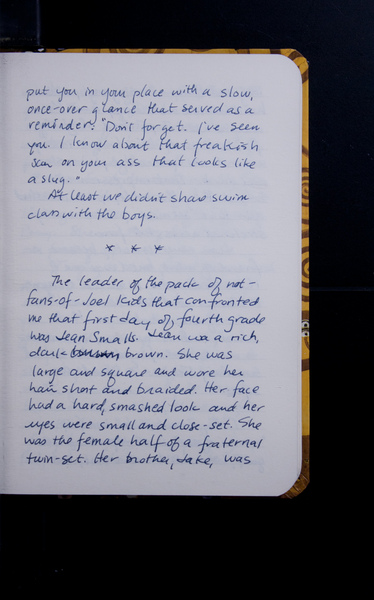 put you in your place with a slow,
once-over glance that served as a
reminder: "Don't forget. I've seen
you. I know about that freakish
scar on your ass that looks like
a slug."
At least we didn't share swim
class with the boys.
* * *
The leader of the pack of not-
fans-of-Joel kids that confronted
me that first day of fourth grade
was Jean Smalls. Jean was a rich,
dark brown. She was
large and square and wore her
hair short and braided. Her face
had a hard, smashed look and her
eyes were small and close-set. She
was the female half of a fraternal
twin-set. Her brother, Jake, was